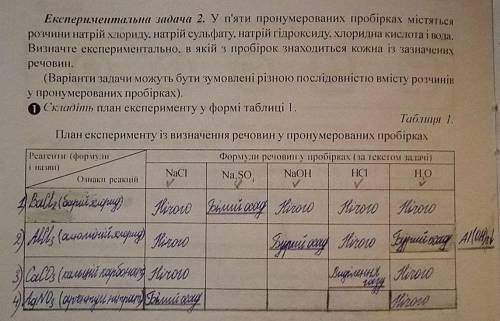 Експериментальна задача 2. У п'яти пронумерованих пробірках містяться
розчини натрій хлориду, натрій сульфату, натрій гідроксиду, хлоридна кислота і вода.
Визначте експериментально, в якій з пробірок знаходиться кожна із зазначених
речовин.
(Варіанти задачі можуть бути зумовлені різною послідовністю вмісту розчинів
у пронумерованих пробірках).
1 Складіть план експерименту у формі таблиці 1.
Таблиця 1.
План експерименту із визначення речовин у пронумерованих пробірках
Реагенти (формули
і назви)
Ознаки реакцій
Формули речовин у пробірках (за текстом задачі)
NaCl Na₂SO₄ NaOH HCl H₂O
1) BaCl₂ (барій хлорид) Нічого Білий осад Нічого Нічого Нічого
2) AlCl₃ (алюміній хлорид) Нічого Бурий осад Нічого Бурий осад Al(OH)₃↓
3) CaCO₃ (кальцій карбонат) Нічого Виділення газу Нічого
4) AgNO₃ (аргентум нітрат) Білий осад Нічого